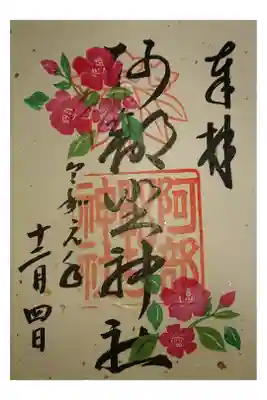 奉拝
阿部野神社
阿部
野
神社
令和元年
十二月四日